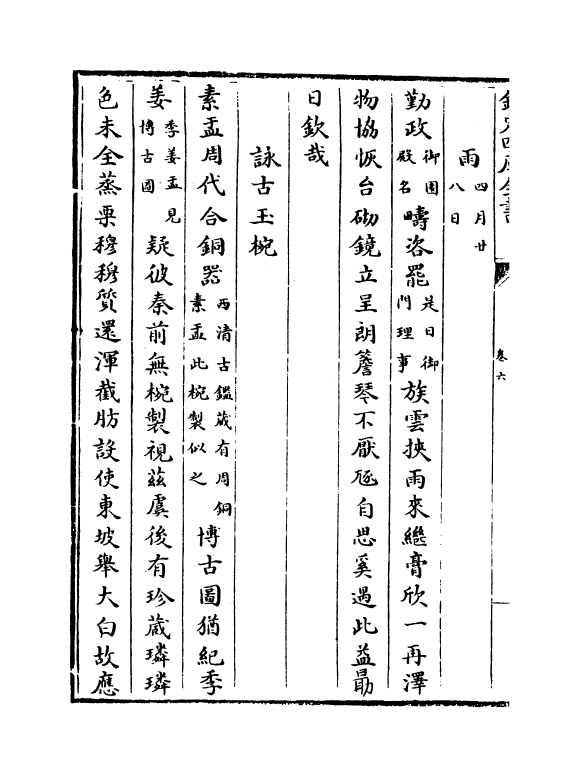 欽定四庫全書
卷六
雨四月廿八日
勤政御園殿名疇咨罷是日御門理事族雲挾雨來繼膏欣一再澤
物協恢台砌鏡立呈朗簷琴不厭豗自思奚遇此益勖
日欽哉
詠古玉椀
素盂周代合銅器西清古鑑蔵有周銅素盂此椀製似之博古圖猶紀季
姜季姜盂見博古圖疑彼秦前無椀製視茲虞後有珍蔵璘璘
色未全蒸栗穆穆質還渾截肪設使東坡舉大白故應